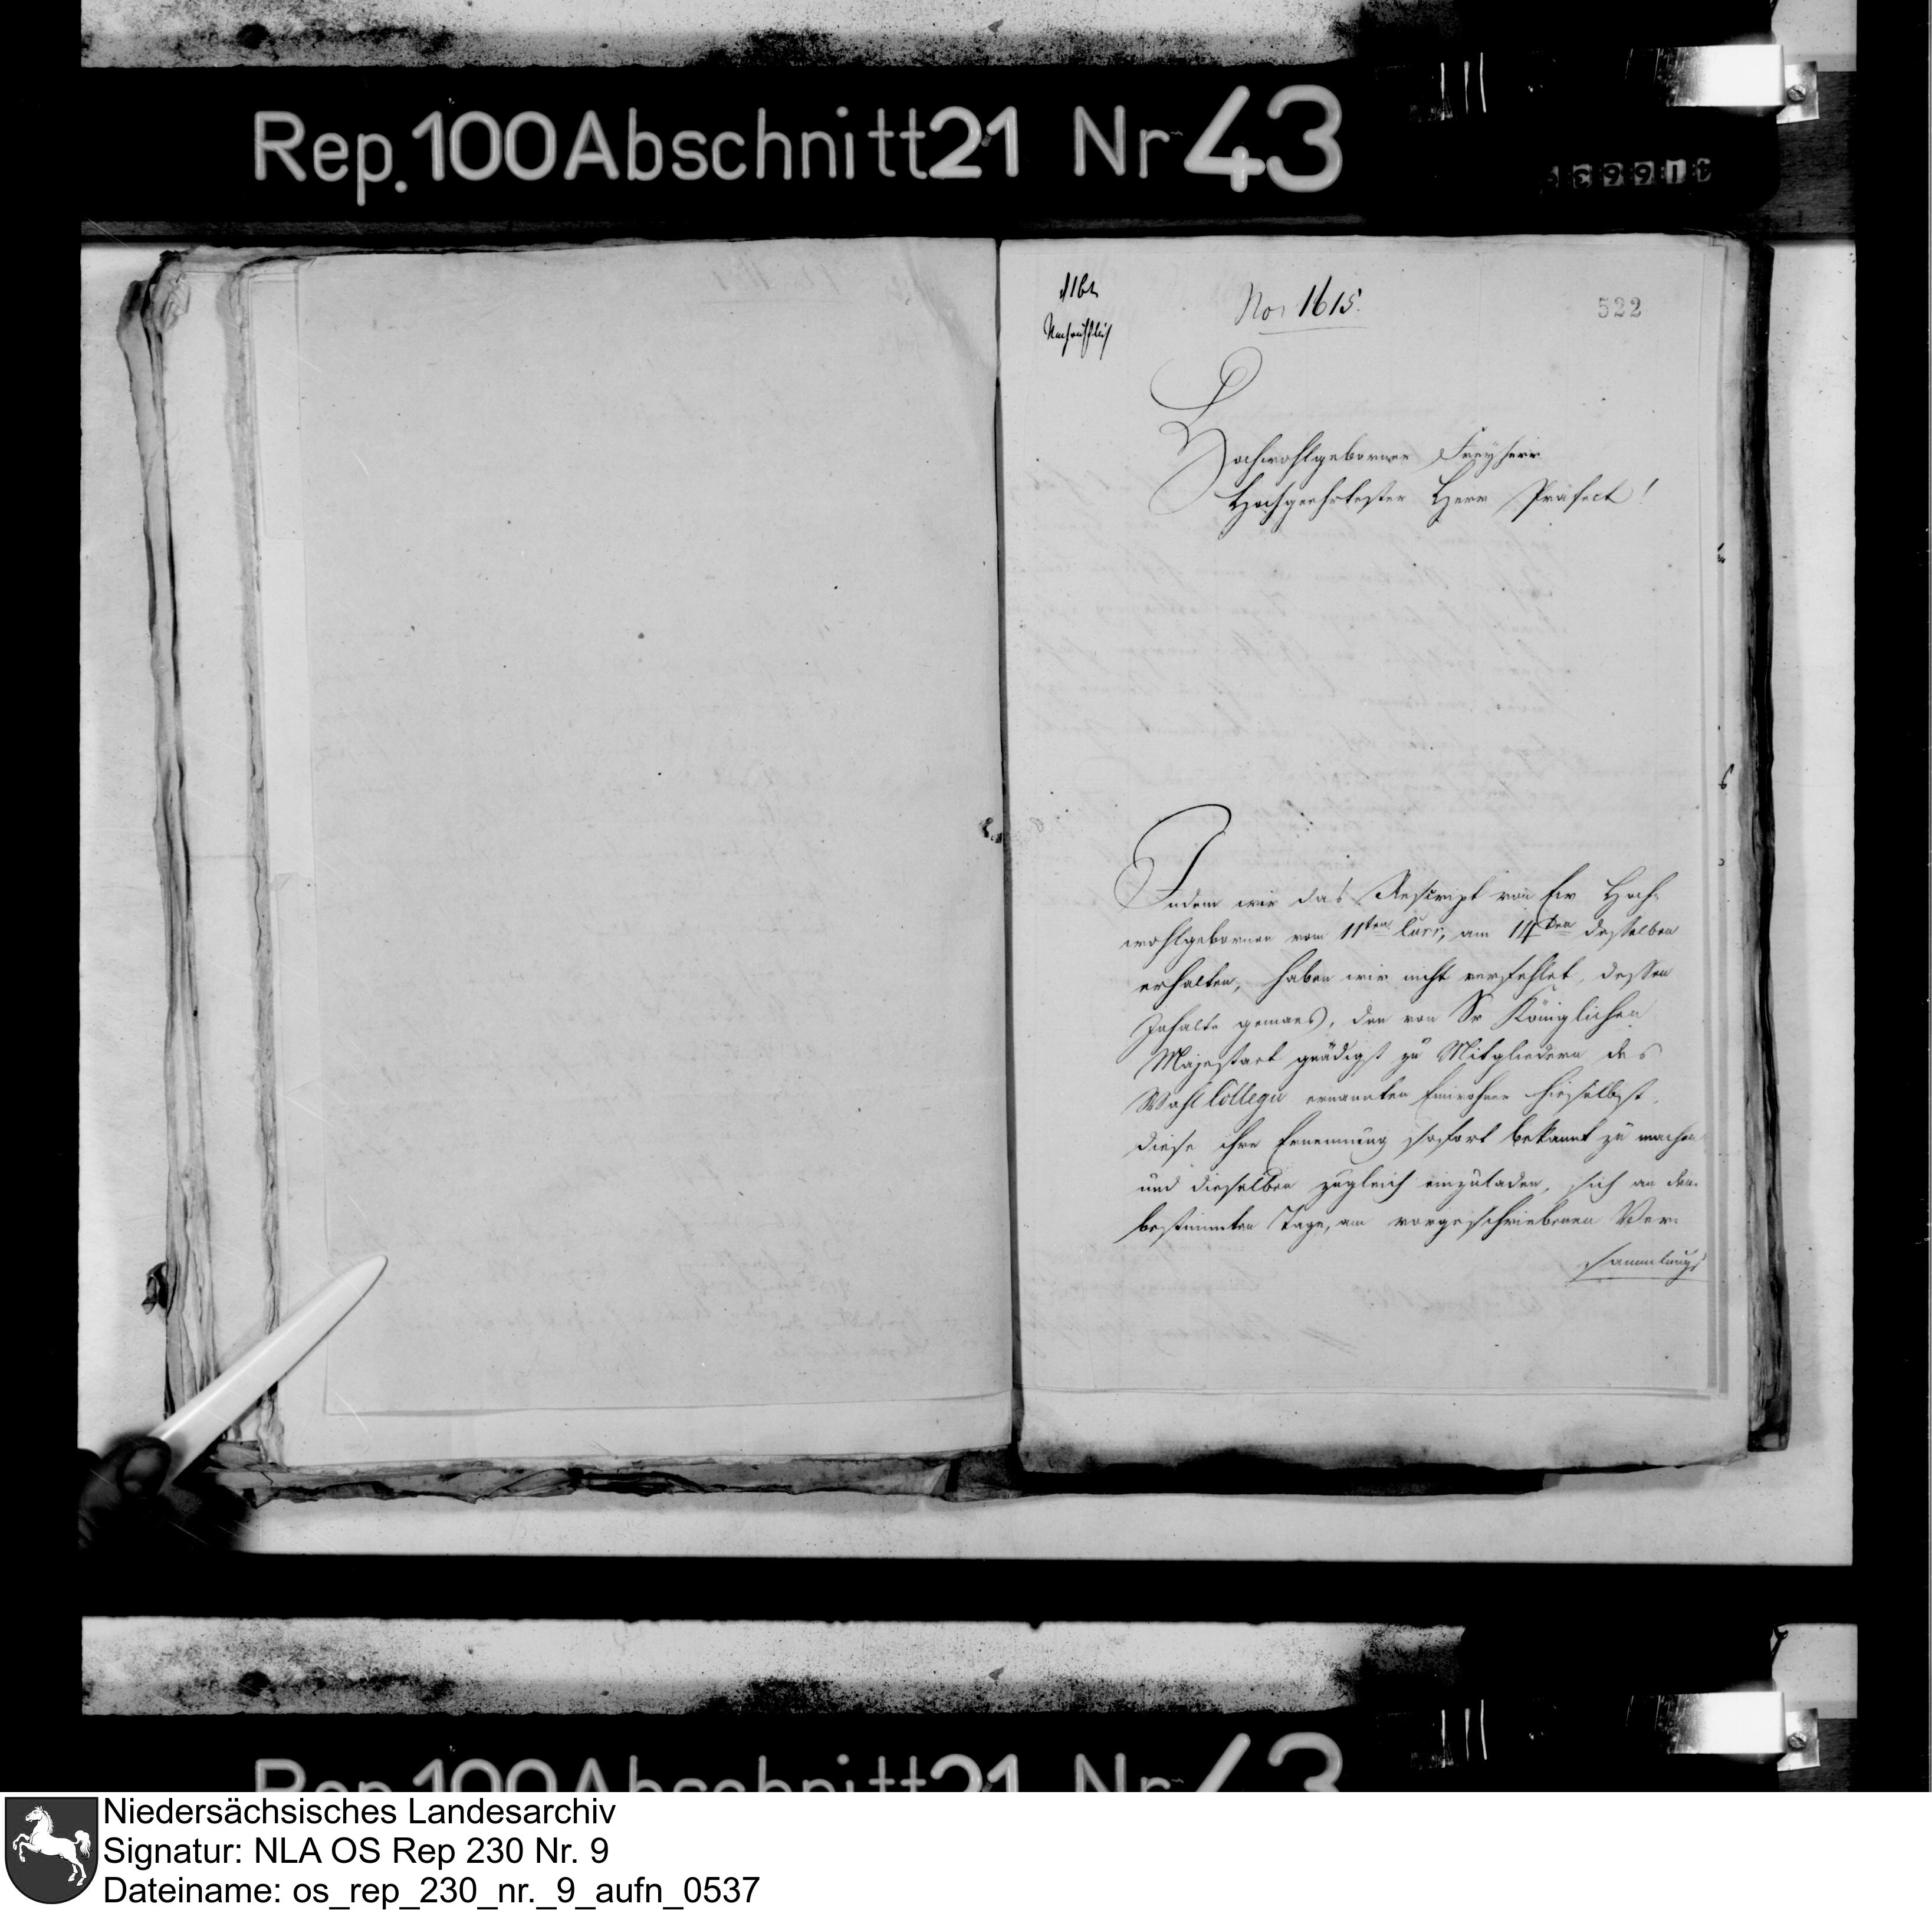 Rep. 100 Abschnitt 21 Nr 43
No. 1615.
522
Hochwohlgeborner Freyherr
Hochgeehrtester Herr Präfect!
Indem wir das Rescript von Ew Hoch-
wohlgebornen vom 11ten curr, am 14ten desselben
erhalten, haben wir nicht verfehlet, dessen
Inhalte gemaes, den von Sr Königlichen
Majestaet gnädigst zu Mitgliedern des
Wahl Collegii ernannten Einwohner hieselbst,
diese ihre Ernennung sofort bekannt zu machen
und dieselben zugleich einzuladen, sich an dem
bestimmten Tage, am vorgeschriebenen Ver-
sammlungs
Rep. 100 Abschnitt 21 Nr 43
Niedersächsisches Landesarchiv
Signatur: NLA OS Rep 230 Nr. 9
Dateiname: os_rep_230_nr._9_aufn_0537